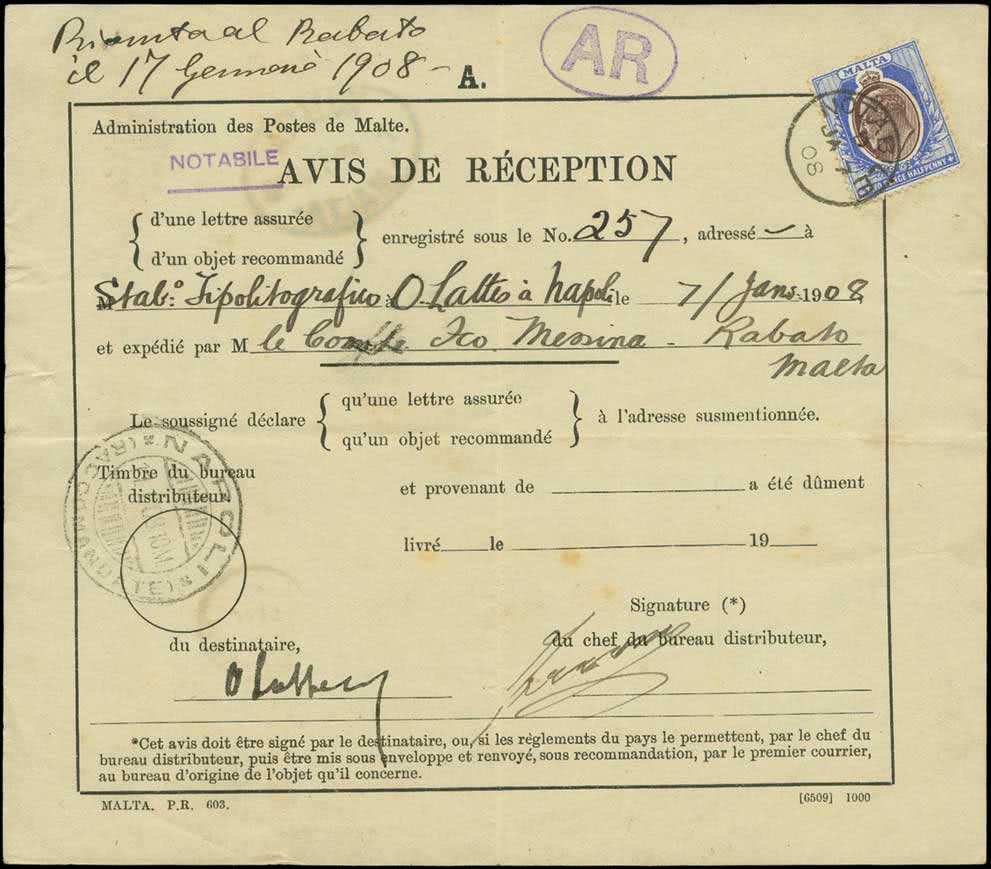 al Rabato
il 17 1908 -
A.
AR
MALTA
NOTABILE
JA 7
08
PENCE HALFPENNY
Administration des Postes de Malte.
NOTABILE
AVIS DE RÉCEPTION
d'une lettre assurée
d'un objet recommandé
enregistré sous le No. 257, adressé à
M Stab.o Tipolitografico à O Lattes à Napoli le 7/ Jany 1908
et expédié par M le Comte Fco Messina - Rabato
Malta
Le soussigné déclare
qu'une lettre assurée
qu'un objet recommandé
à l'adresse susmentionnée.
Timbre du bureau
distributeur
NAPOLI (RACCOMANDATE)
et provenant de a été dûment
livré le 19
Signature (*)
du destinataire,
du chef du bureau distributeur,
*Cet avis doit être signé par le destinataire, ou, si les règlements du pays le permettent, par le chef du
bureau distributeur, puis être mis sous enveloppe et renvoyé, sous recommandation, par le premier courrier,
au bureau d'origine de l'objet qu'il concerne.
MALTA. P.R. 603.
[6509] 1000